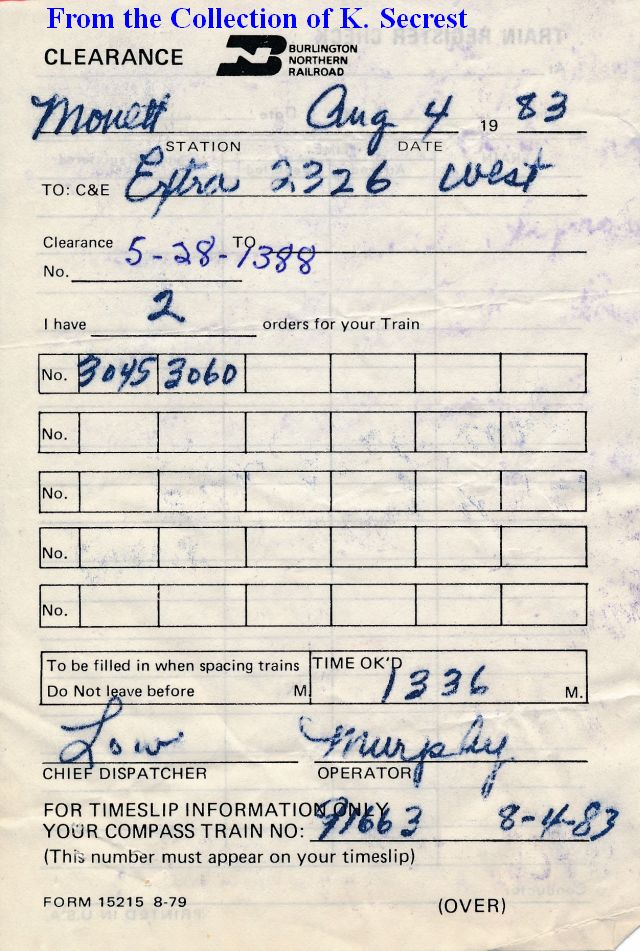 From the Collection of K. Secrest
CLEARANCE BN BURLINGTON NORTHERN RAILROAD
Monett Aug 4 19 83
STATION DATE
TO: C&E Extra 2326 West
Clearance No. 5-28-1388 TO
I have 2 orders for your Train
No. 3045 3060
No.
No.
No.
No.
To be filled in when spacing trains TIME OK'D
Do Not leave before M. 1336 M.
Low Murphy
CHIEF DISPATCHER OPERATOR
FOR TIMESLIP INFORMATION ONLY
YOUR COMPASS TRAIN NO: 8-4-83
(This number must appear on your timeslip)
FORM 15215 8-79 (OVER)